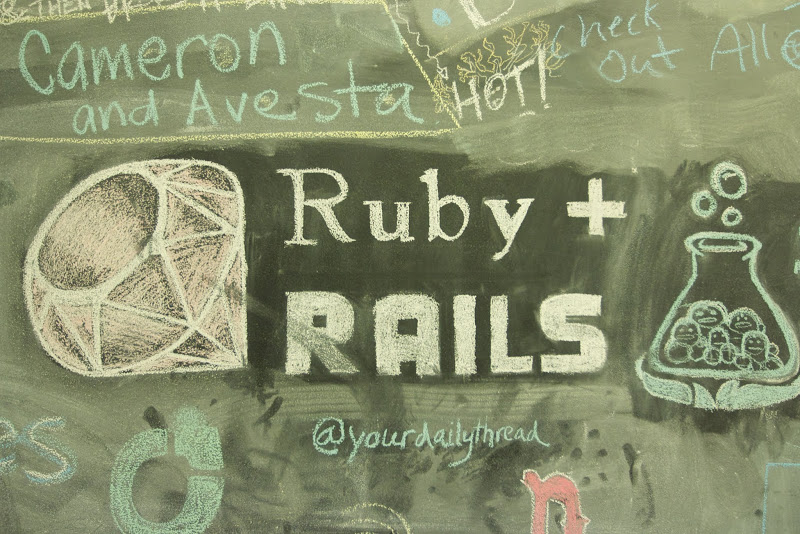 & THEN
Cameron
and Avesta
HOT!
Check
Out All
Ruby +
RAILS
@yourdailythread
es
n